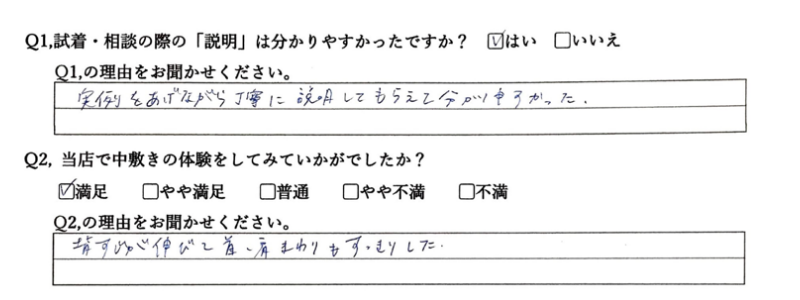 Q1,試着・相談の際の「説明」は分かりやすかったですか？ ☑はい ☐いいえ
Q1,の理由をお聞かせください。
実例をあげながら丁寧に説明してもらえて分かりやすかった.
Q2, 当店で中敷きの体験をしてみていかがでしたか？
☑満足 ☐やや満足 ☐普通 ☐やや不満 ☐不満
Q2,の理由をお聞かせください。
背すじが伸びて首、肩まわりもすっきりした.